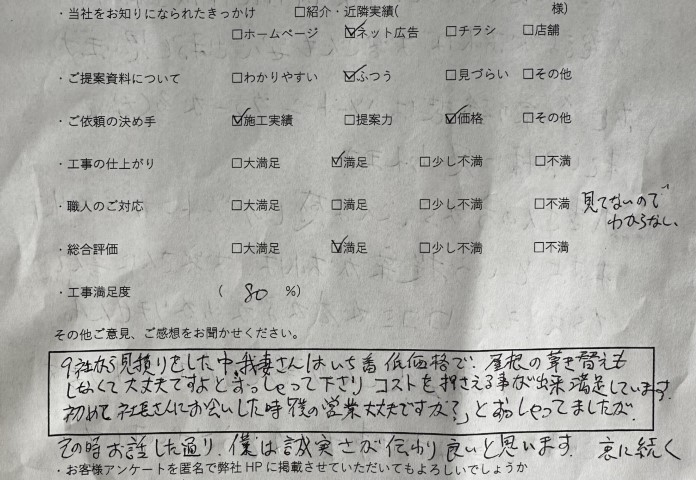 ・当社をお知りになられたきっかけ □紹介・近隣実績( 様)
□ホームページ ☑ネット広告 □チラシ □店舗
・ご提案資料について □わかりやすい ☑ふつう □見づらい □その他
・ご依頼の決め手 ☑施工実績 □提案力 ☑価格 □その他
・工事の仕上がり □大満足 ☑満足 □少し不満 □不満
・職人のご対応 □大満足 □満足 □少し不満 □不満 見てないので
わからない、
・総合評価 □大満足 ☑満足 □少し不満 □不満
・工事満足度 ( 80 %)
その他ご意見、ご感想をお聞かせください。
9社から見積りをした中、我妻さんはいち番低価格で、屋根の葺き替えも
しなくて大丈夫ですよとおっしゃって下さり コストを押さえる事が出来満足しています。
初めて社長さんにお会いした時「僕の営業大丈夫ですか?」とおっしゃってましたが、
その時お話した通り、僕は誠実さが伝わり良いと思います。 裏に続く
・お客様アンケートを匿名で弊社HPに掲載させていただいてもよろしいでしょうか